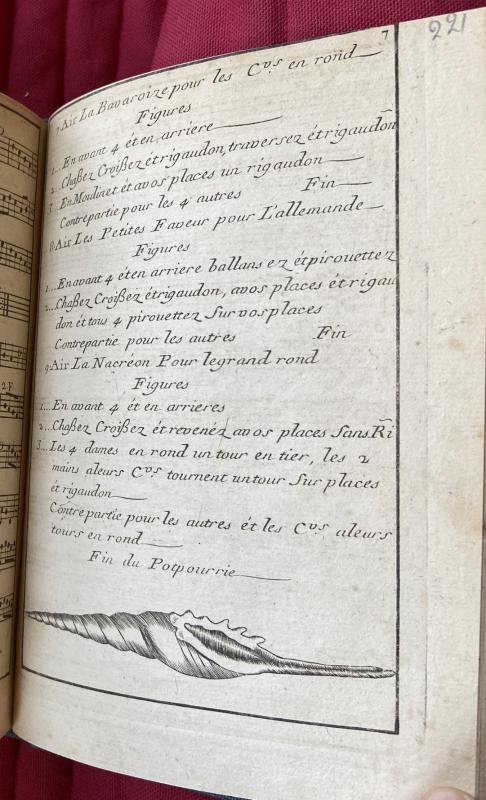 221
7
7 Air La Bavaroize pour les C.vs en rond
Figures
1... En avant 4 ét en arriere
2... Chaßez Croißez ét rigaudon, traversez ét rigaudon
3... En Moulinet ét avos places un rigaudon
Contrepartie pour les 4 autres Fin
8 Air Les Petites Faveur pour L'allemande
Figures
1... En avant 4 ét en arriere ballans ez ét pirouettez
2... Chaßez Croißez ét rigaudon, avos places ét rigau
don ét tous 4 pirouettez Sur vos places
Contrepartie pour les autres Fin
9 Air La Nacréon Pour le grand rond
Figures
1... En avant 4 ét en arrieres
2... Chaßez Croißez ét revenéz avos places Sans Ri
3... Les 4 dames en rond un tour en tier, les 2
mains aleurs C.vs tournent un tour Sur places
ét rigaudon
Contrepartie pour les autres ét les C.vs aleurs
tours en rond
Fin du Potpourrie
2.F.